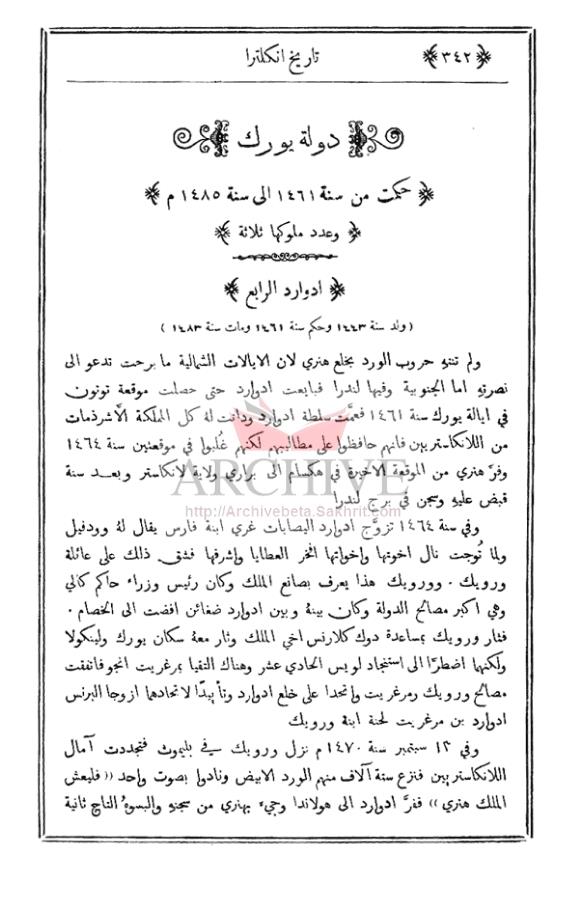 ﴿٣٤٢﴾ تاريخ انكلترا
دولة يورك
﴿ حكمت من سنة ١٤٦١ الى سنة ١٤٨٥ م ﴾
﴿ وعدد ملوكها ثلاثة ﴾
﴿ ادوارد الرابع ﴾
( ولد سنة ١٤٤٣ وحكم سنة ١٤٦١ ومات سنة ١٤٨٣ )
ولم تنته حروب الورد بخلع هنري لان الايالات الشمالية ما برحت تدعو الى
نصرته اما الجنوبية وفيها لندرا فبايعت ادوارد حتى حصلت موقعة توتون
في ايالة يورك سنة ١٤٦١ فعمَّت سلطة ادوارد ودانت لهُ كل المملكة الاَّ شرذمات
من اللانكاستريين فانهم حافظوا على مطاليبهم لكنهم غُلبوا في موقعتين سنة ١٤٦٤
وفرَّ هنري من الموقعة الاخيرة في هكسام الى براري ولاية لانكاستر وبعـد سنة
قبض عليهِ وسجن في برج لندرا
ARCHIVE
http://Archivebeta.Sakhrit.com
وفي سنة ١٤٦٤ تزوَّج ادوارد اليصابات غري ابنة فارس يقال لهُ وودفيل
ولما تُوجت نال اخوتها واخواتها افخر العطايا واشرفها فشق ذلك على عائلة
ورويك . وورويك هذا يعرف بصانع الملك وكان رئيس وزراء حاكم كالي
وهي اكبر مصالح الدولة وكان بينهُ وبين ادوارد ضغائن افضت الى الخصام .
فثار ورويك بمساعدة دوك كلارنس اخي الملك وثار معهُ سكان يورك ولينكولا
ولكنهما اضطرَّا الى استنجاد لويس الحادي عشر وهناك التقيا بمرغريت انجو فاتفقت
مصالح ورويك ومرغريت واتحدا على خلع ادوارد وتأييدًا لاتحادهما ازوجا البرنس
ادوارد بن مرغريت لحنة ابنة ورويك
وفي ١٣ سبتمبر سنة ١٤٧٠ م نزل ورويك في بليموث فتجددت آمال
اللانكاستريين فنزع ستة آلاف منهم الورد الابيض ونادوا بصوت واحد « فليعش
الملك هنري » ففرَّ ادوارد الى هولاندا وجيءَ بهنري من سجنهِ والبسوهُ التاج ثانية